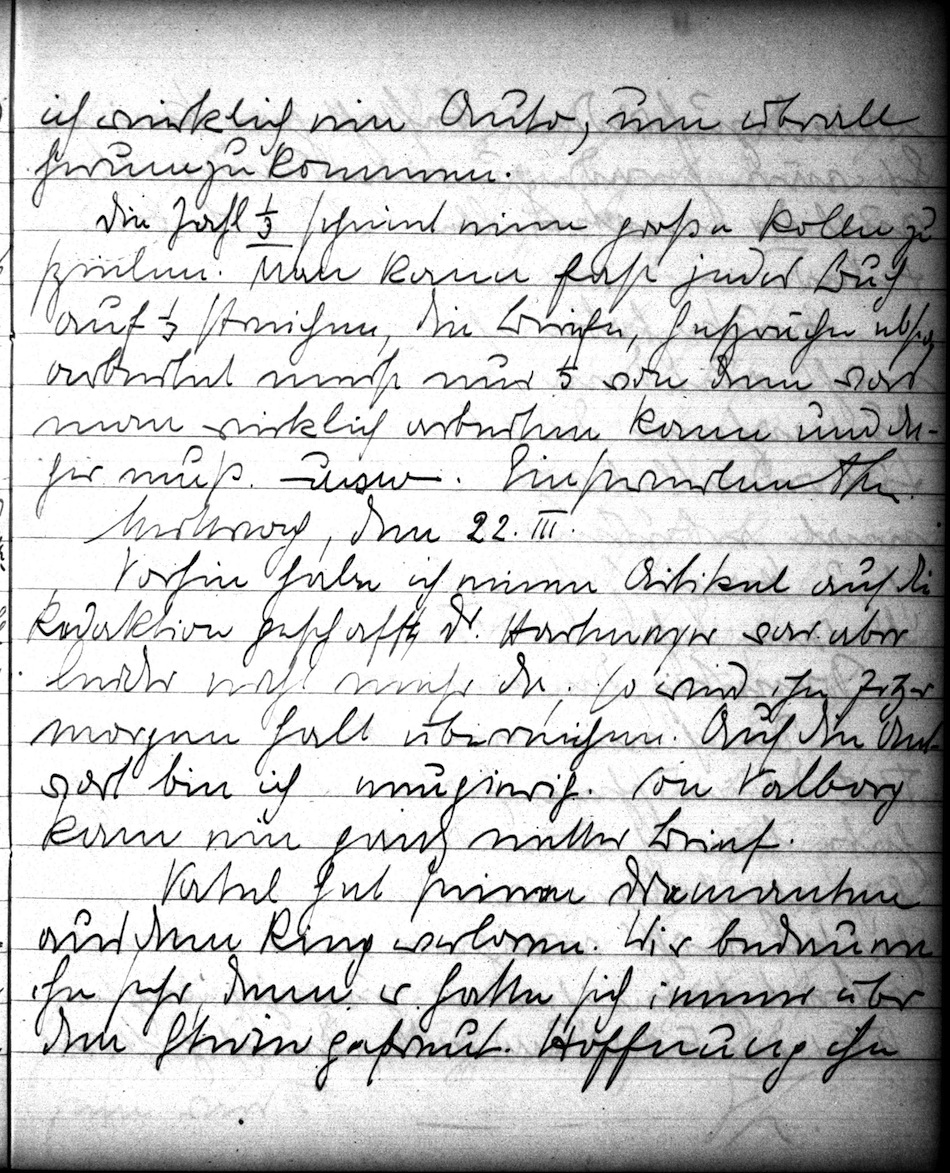 ich wirklich ein Auto, um überall
herumzukommen.
Die Zahl 1/3 scheint eine große Rolle zu
spielen. Man kann fast jedes Buch
auf 1/3 streichen, die Briefe, Gespräche
arbeitet meist nur 1/3 von dem was
man wirklich arbeiten kann und da-
her muß. usw. Einstweilen
Mittwoch, den 22. III.
Vorhin habe ich meinen Artikel auf die
Redaktion geschafft, Dr. Hartmeyer war aber
leider nicht mehr da, so wird ihn
morgen halt überreichen. Auf die Ant-
wort bin ich neugierig. Von Valborg
kam ein ganz netter Brief.
Vatel hat seinen Diamanten
aus dem Ring verloren. Wir bedauern
ihn sehr, denn er hatte sich immer über
den Stein gefreut. Hoffnung ihn